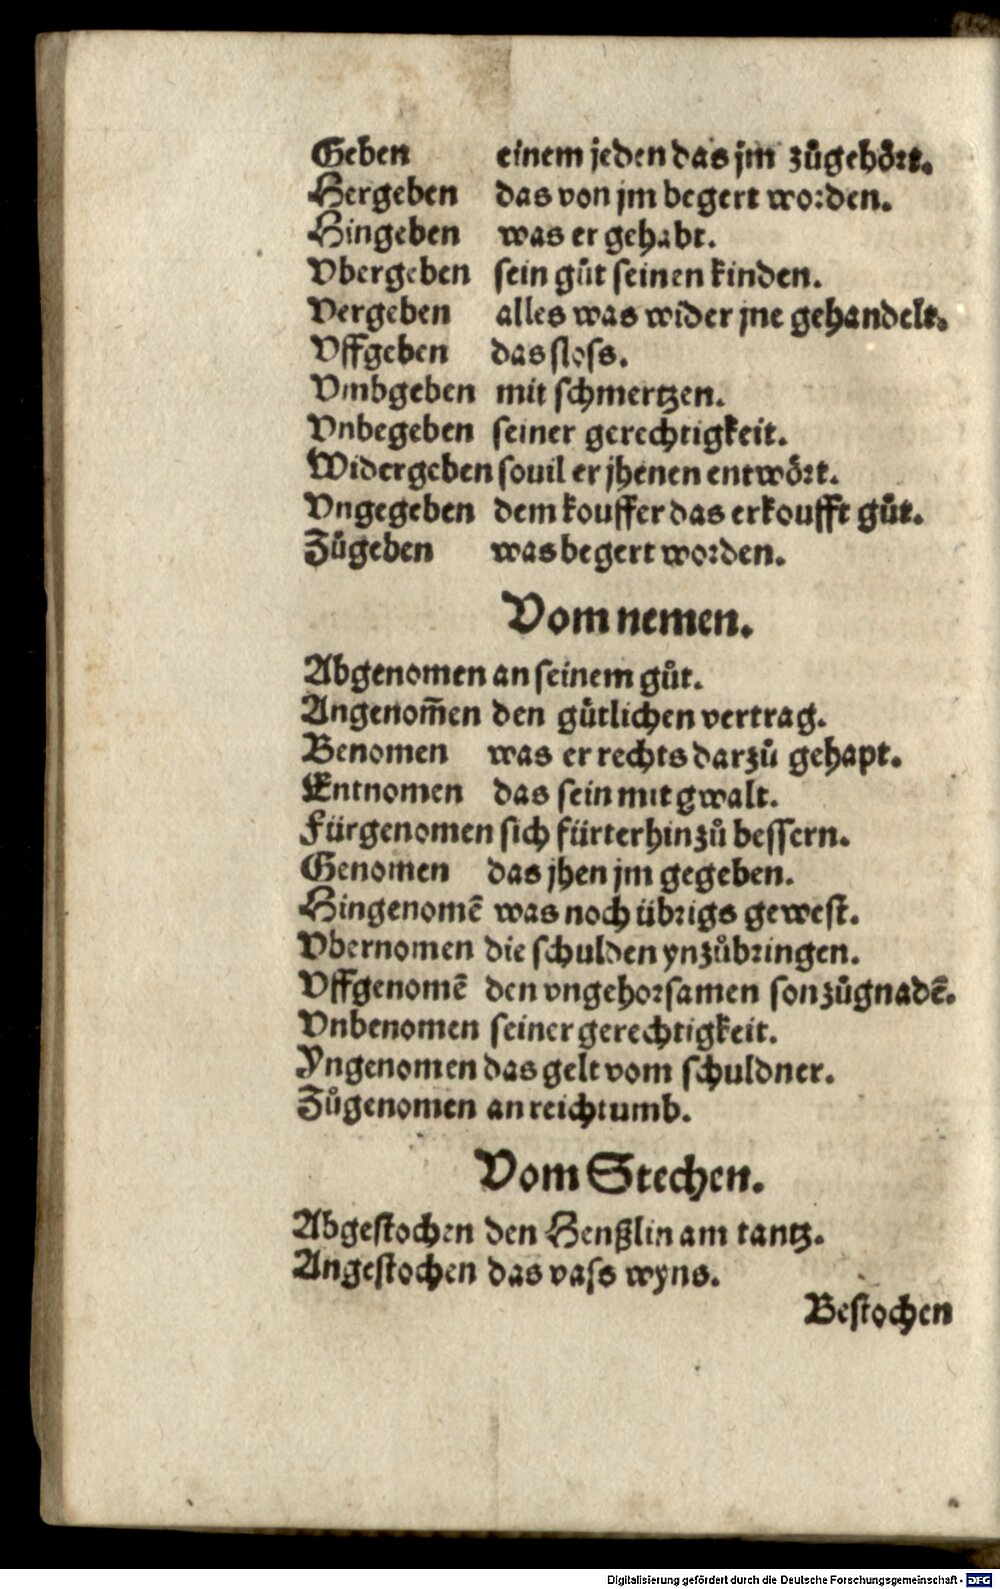 Geben einem jeden das jm zůgehört.
Hergeben das von jm begert worden.
Hingeben was er gehabt.
Vbergeben sein gůt seinen kinden.
Vergeben alles was wider jne gehandelt.
Vffgeben das sloss.
Vmbgeben mit schmertzen.
Vnbegeben seiner gerechtigkeit.
Widergeben souil er jhenen entwört.
Vngegeben dem kouffer das erkoufft gůt.
Zůgeben was begert worden.
Vom nemen.
Abgenomen an seinem gůt.
Angenom̃en den gütlichen vertrag.
Benomen was er rechts darzů gehapt.
Entnomen das sein mit gwalt.
Fürgenomen sich fürterhin zů bessern.
Genomen das jhen jm gegeben.
Hingenomẽ was noch übrigs gewest.
Vbernomen die schulden ynzůbringen.
Vffgenomẽ den vngehorsamen son zůgnadẽ.
Vnbenomen seiner gerechtigkeit.
Yngenomen das gelt vom schuldner.
Zůgenomen an reichtumb.
Vom Stechen.
Abgestochen den Henßlin am tantz.
Angestochen das vass wyns.
Bestochen
Digitalisierung gefördert durch die Deutsche Forschungsgemeinschaft - DFG